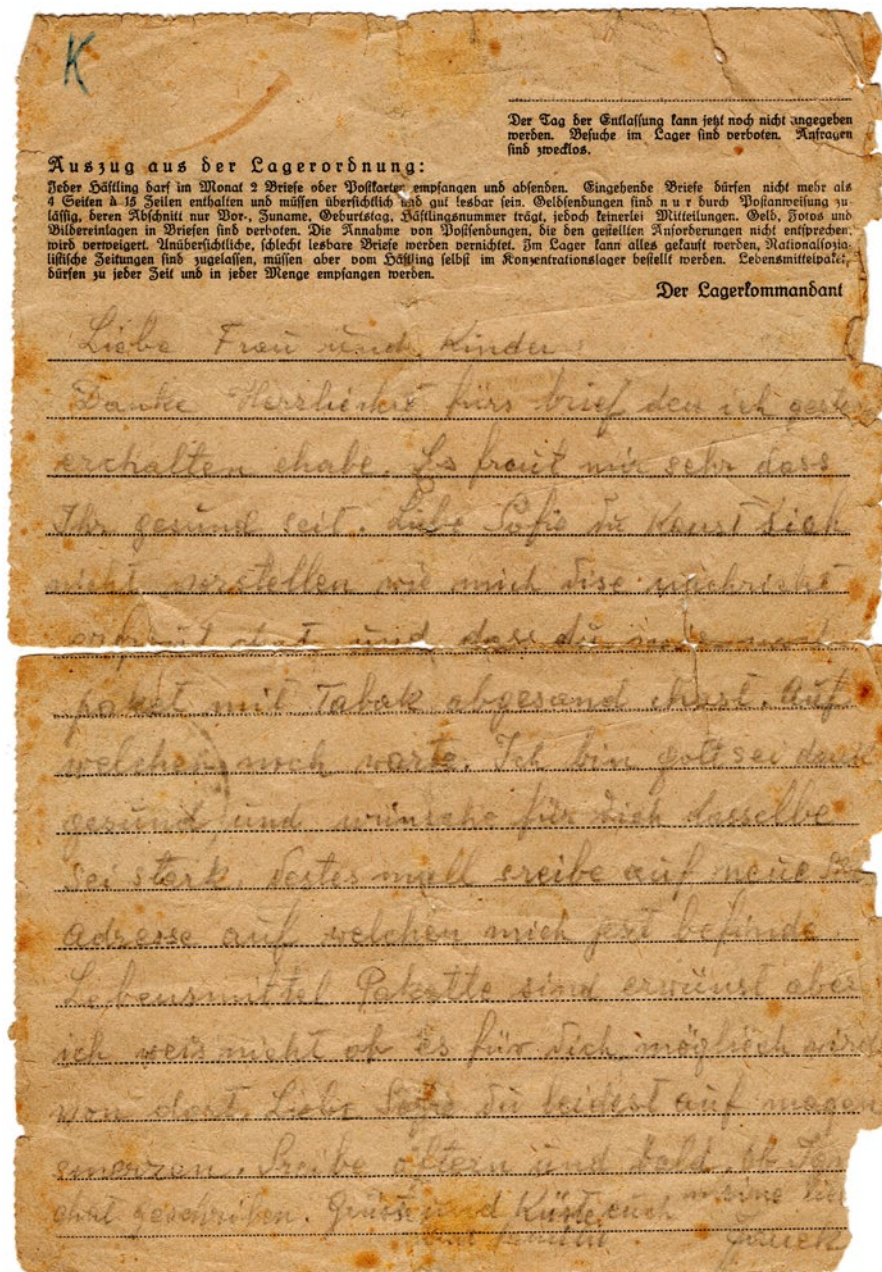 K
Der Tag der Entlassung kann jetzt noch nicht angegeben
werden. Besuche im Lager sind verboten. Anfragen
sind zwecklos.
Auszug aus der Lagerordnung:
Jeder Häftling darf im Monat 2 Briefe oder Postkarten empfangen und absenden. Eingehende Briefe dürfen nicht mehr als
4 Seiten à 15 Zeilen enthalten und müssen übersichtlich und gut lesbar sein. Geldsendungen sind nur durch Postanweisung zu-
lässig, deren Abschnitt nur Vor-, Zuname, Geburtstag, Häftlingsnummer trägt, jedoch keinerlei Mitteilungen. Geld, Fotos und
Bildereinlagen in Briefen sind verboten. Die Annahme von Postsendungen, die den gestellten Anforderungen nicht entsprechen,
wird verweigert. Unübersichtliche, schlecht lesbare Briefe werden vernichtet. Im Lager kann alles gekauft werden, Nationalsozia-
listische Zeitungen sind zugelassen, müssen aber vom Häftling selbst im Konzentrationslager bestellt werden. Lebensmittelpakete
dürfen zu jeder Zeit und in jeder Menge empfangen werden.
Der Lagerkommandant
Liebe Frau und Kinder
Danke Herrlichst fürs brief den ich
erchalten ehabe. Es fraut mir sehr dass
Ihr gesund seit. Liebe Sofie du Kanst dich
nicht vorstellen wie mich dise nachricht
und dass du
paket mit Tabak abgesand chast. Auf
welchen noch warte. Ich bin gott sei
gesund und wünsche für dich dasselbe
sei stark. mall sreibe auf neue
Adresse auf welchen mich jezt befinde.
Lebensmittel Pakette sind erwünst aber
ich weis nicht op es für dich möglich wird
von dort. Liebe Sofie du leidest auf magen
smerzen. Sreibe öftern und bald.
chat geschriben. Grüsse und Küsse euch meine